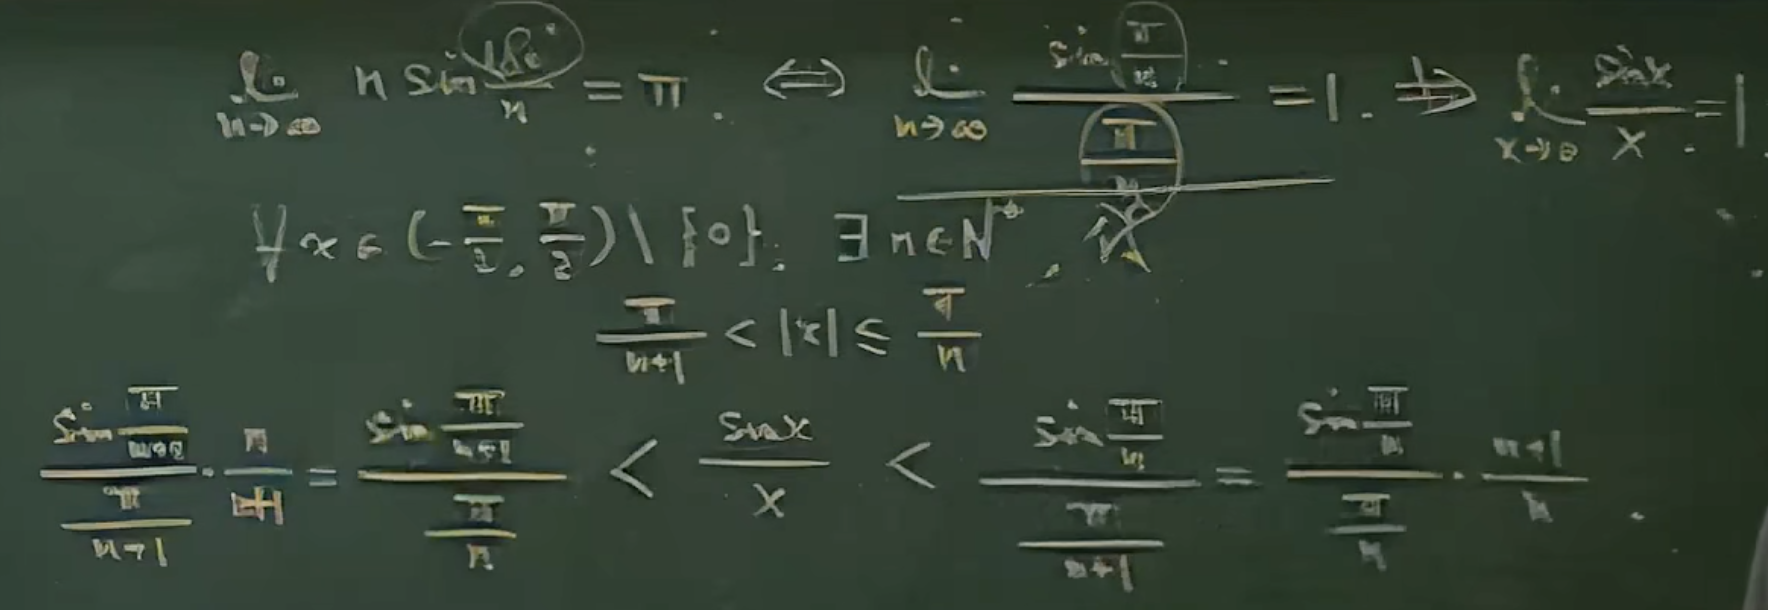 lim n→∞ n sin 180°/n = π. ⇔ lim n→∞ (sin π/n)/(π/n) = 1. ⇏ lim x→0 sin x/x = 1.
∀x∈(-π/2, π/2)\{0}. ∃n∈N*,
π/(n+1) < |x| ≤ π/n
(sin π/(n+1))/(π/(n+1)) · n/(n+1) = (sin π/(n+1))/(π/n) < sin x/x < (sin π/n)/(π/(n+1)) = (sin π/n)/(π/n) · (n+1)/n.